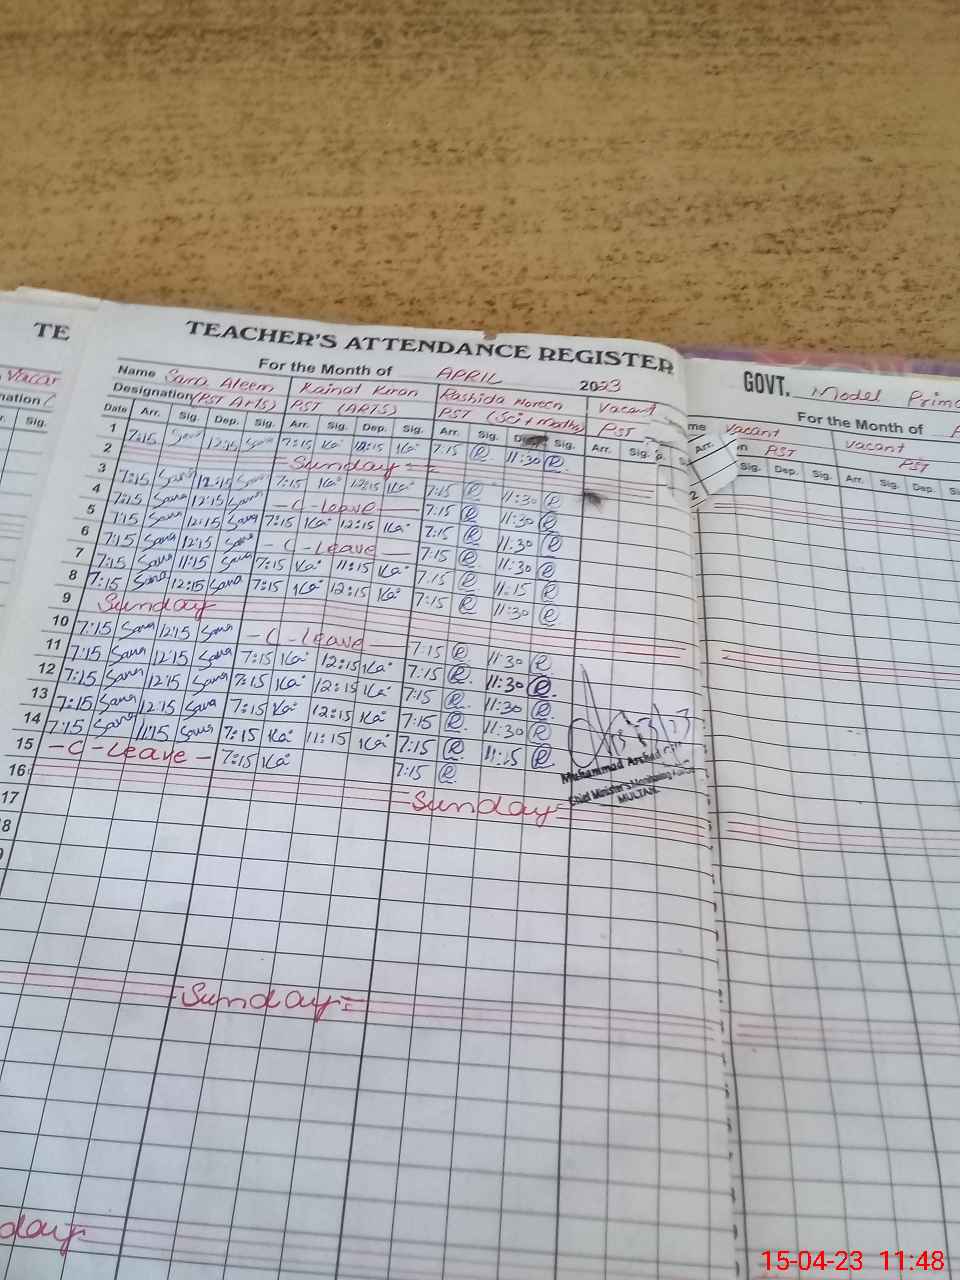 TE
TEACHER'S ATTENDANCE REGISTER
For the Month of APRIL 2023
Name Sana Aleem Kainat Kiran Rashida Noreen Vacant
Designation (PST Arts) PST (ARTS) PST (Sci + maths) PST
Date Arr. Sig. Dep. Sig. Arr. Sig. Dep. Sig. Arr. Sig. Sig. Arr. Sig.
1 7:15 Sana 12:15 Sana 7:15 Ka 12:15 Ka 7:15 R 11:30 R
2 Sunday
3 7:15 Sana 12:15 Sana 7:15 Ka 12:15 Ka 7:15 R 11:30 R
4 7:15 Sana 12:15 Sana - C - Leave - 7:15 R 11:30 R
5 7:15 Sana 12:15 Sana 7:15 Ka 12:15 Ka 7:15 R 11:30 R
6 7:15 Sana 12:15 Sana - C - Leave - 7:15 R 11:30 R
7 7:15 Sana 11:15 Sana 7:15 Ka 11:15 Ka 7:15 R 11:15 R
8 7:15 Sana 12:15 Sana 7:15 Ka 12:15 Ka 7:15 R 11:30 R
9 Sunday
10 7:15 Sana 12:15 Sana - C - Leave - 7:15 R 11:30 R
11 7:15 Sana 12:15 Sana 7:15 Ka 12:15 Ka 7:15 R 11:30 R
12 7:15 Sana 12:15 Sana 7:15 Ka 12:15 Ka 7:15 R 11:30 R
13 7:15 Sana 12:15 Sana 7:15 Ka 12:15 Ka 7:15 R 11:30 R
14 7:15 Sana 11:15 Sana 7:15 Ka 11:15 Ka 7:15 R 11:15 R
15 - C - Leave - 7:15 Ka 7:15 R
16 Sunday
17
Muhammad Arshad
Chief Minister's Monitoring Force
MULTAN
Sunday
day
Vacar
nation
Sig.
GOVT. Model
For the Month of
me Vacant vacant
PST PST
Arr. Sig. Dep. Sig. Arr. Sig. Dep.
2
15-04-23 11:48